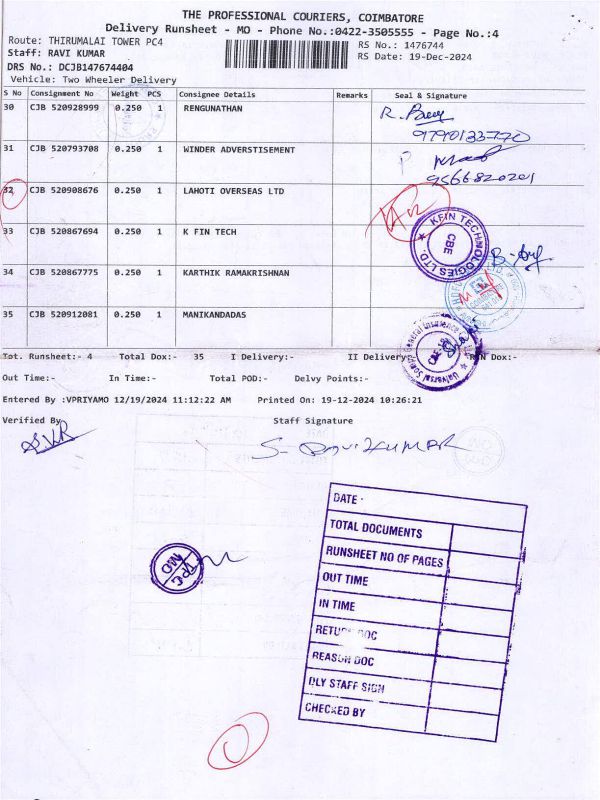 THE PROFESSIONAL COURIERS, COIMBATORE
Delivery Runsheet - MO - Phone No.:0422-3505555 - Page No.:4
Route: THIRUMALAI TOWER PC4
RS No.: 1476744
Staff: RAVI KUMAR
RS Date: 19-Dec-2024
DRS No.: DCJB147674404
Vehicle: Two Wheeler Delivery
S No Consignment No Weight PCS Consignee Details Remarks Seal & Signature
30 CJB 520928999 0.250 1 RENGUNATHAN
9790133770
31 CJB 520793708 0.250 1 WINDER ADVERSTISEMENT
9566820201
32 CJB 520908676 0.250 1 LAHOTI OVERSEAS LTD
33 CJB 520867694 0.250 1 K FIN TECH
KFIN TECHNOLOGIES LTD.
CBE
34 CJB 520867775 0.250 1 KARTHIK RAMAKRISHNAN
35 CJB 520912081 0.250 1 MANIKANDADAS
Universal Sompo General Insurance
Tot. Runsheet:- 4 Total Dox:- 35 I Delivery:- II Delivery:- Dox:-
Out Time:- In Time:- Total POD:- Delvy Points:-
Entered By :VPRIYAMO 12/19/2024 11:12:22 AM Printed On: 19-12-2024 10:26:21
Verified By Staff Signature
S.V.R
S- RAVIKUMAR
TPC
MO
DATE
TOTAL DOCUMENTS
RUNSHEET NO OF PAGES
OUT TIME
IN TIME
RETURN DOC
REASON DOC
DLY STAFF SIGN
CHECKED BY